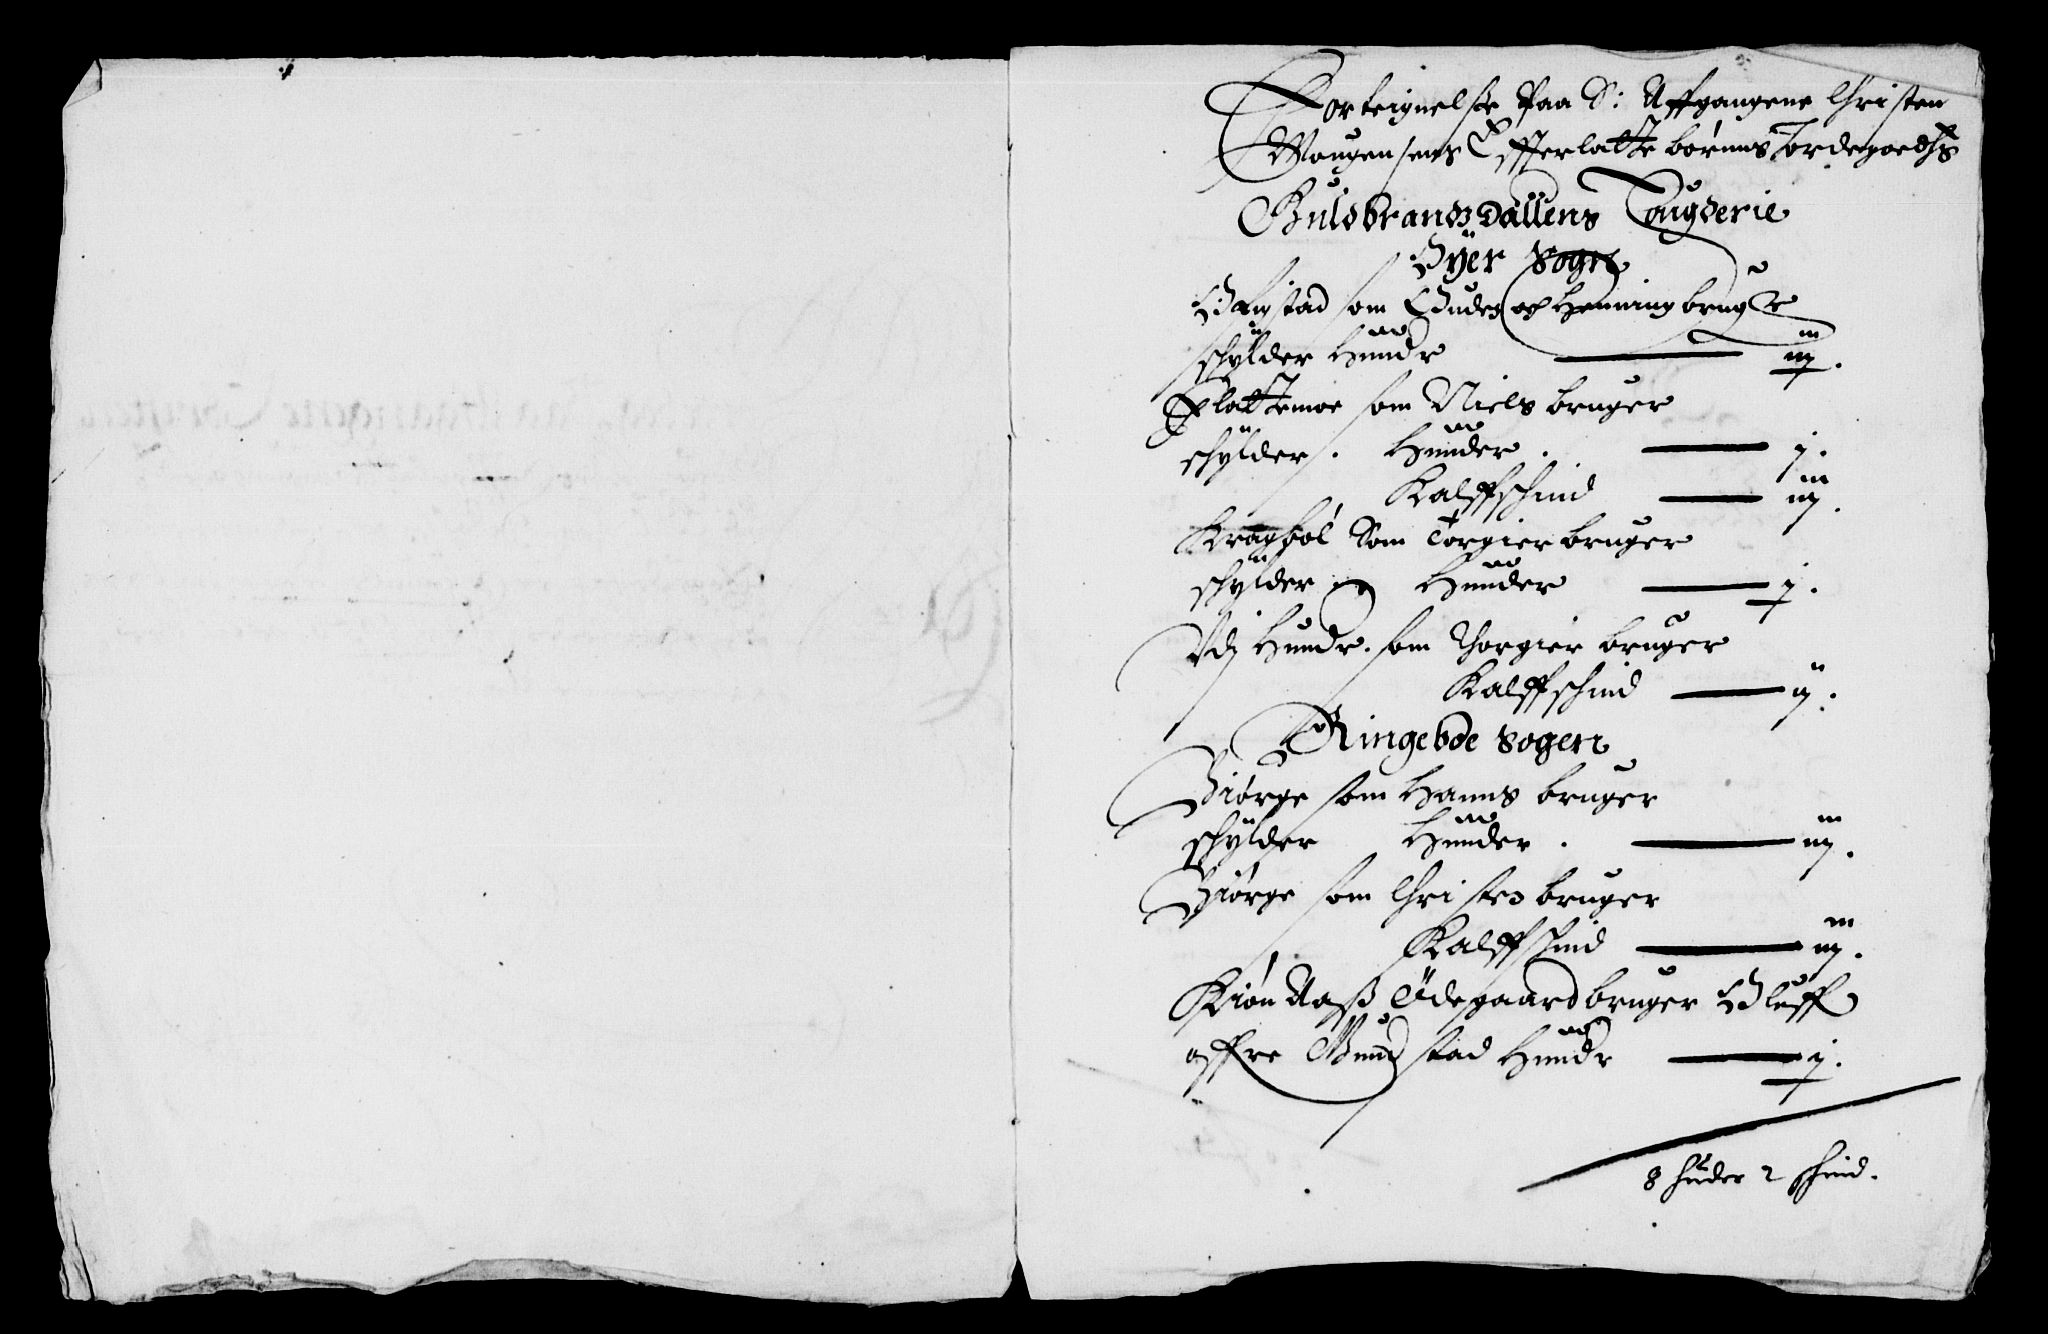 Forteignelse Paa S: Affgangene Christen
Mougensens Effterlatte børnns Jordegoedhs
Guldbrandzdallens Fougderie
Øyer Sogn
som Gudes och Henning bruger
schylder Hunder — iij.
Slattemoe som Niels bruger
schylder. Hunder. — j.
Kalffschind — iij.
Kragbøl Som Torgier bruger
schylder Hunder — j.
Udj Hundr. som Thorgier bruger
Kalffschind — ij.
Ringeboe Sogen
Biørge som Hanns bruger
schylder Hunder. — iij.
Biørge som Christen bruger
Kalffschind — iij.
Kiøn Aaß Ødegaard bruger Oluff
offre stad Hundr — j.
8 huder 2 schind.